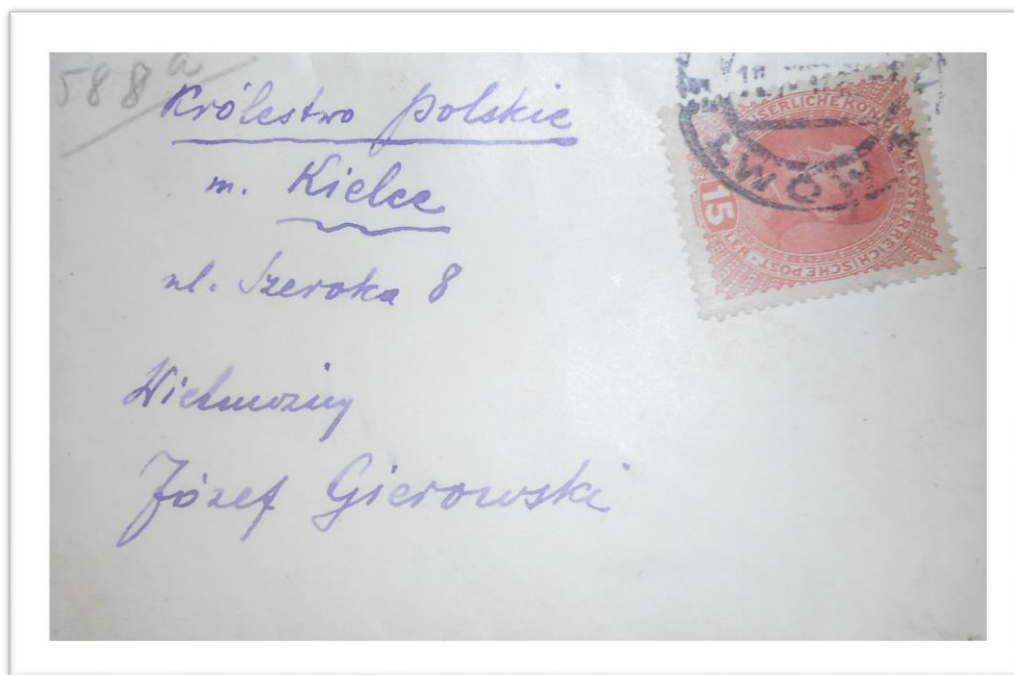 588a
Królestwo Polskie
m. Kielce
ul. Szeroka 8
Wielmożny
Józef Gierowski
LWÓW
KAISERLICHE KÖNIGLICHE ÖSTERREICHISCHE POST
15